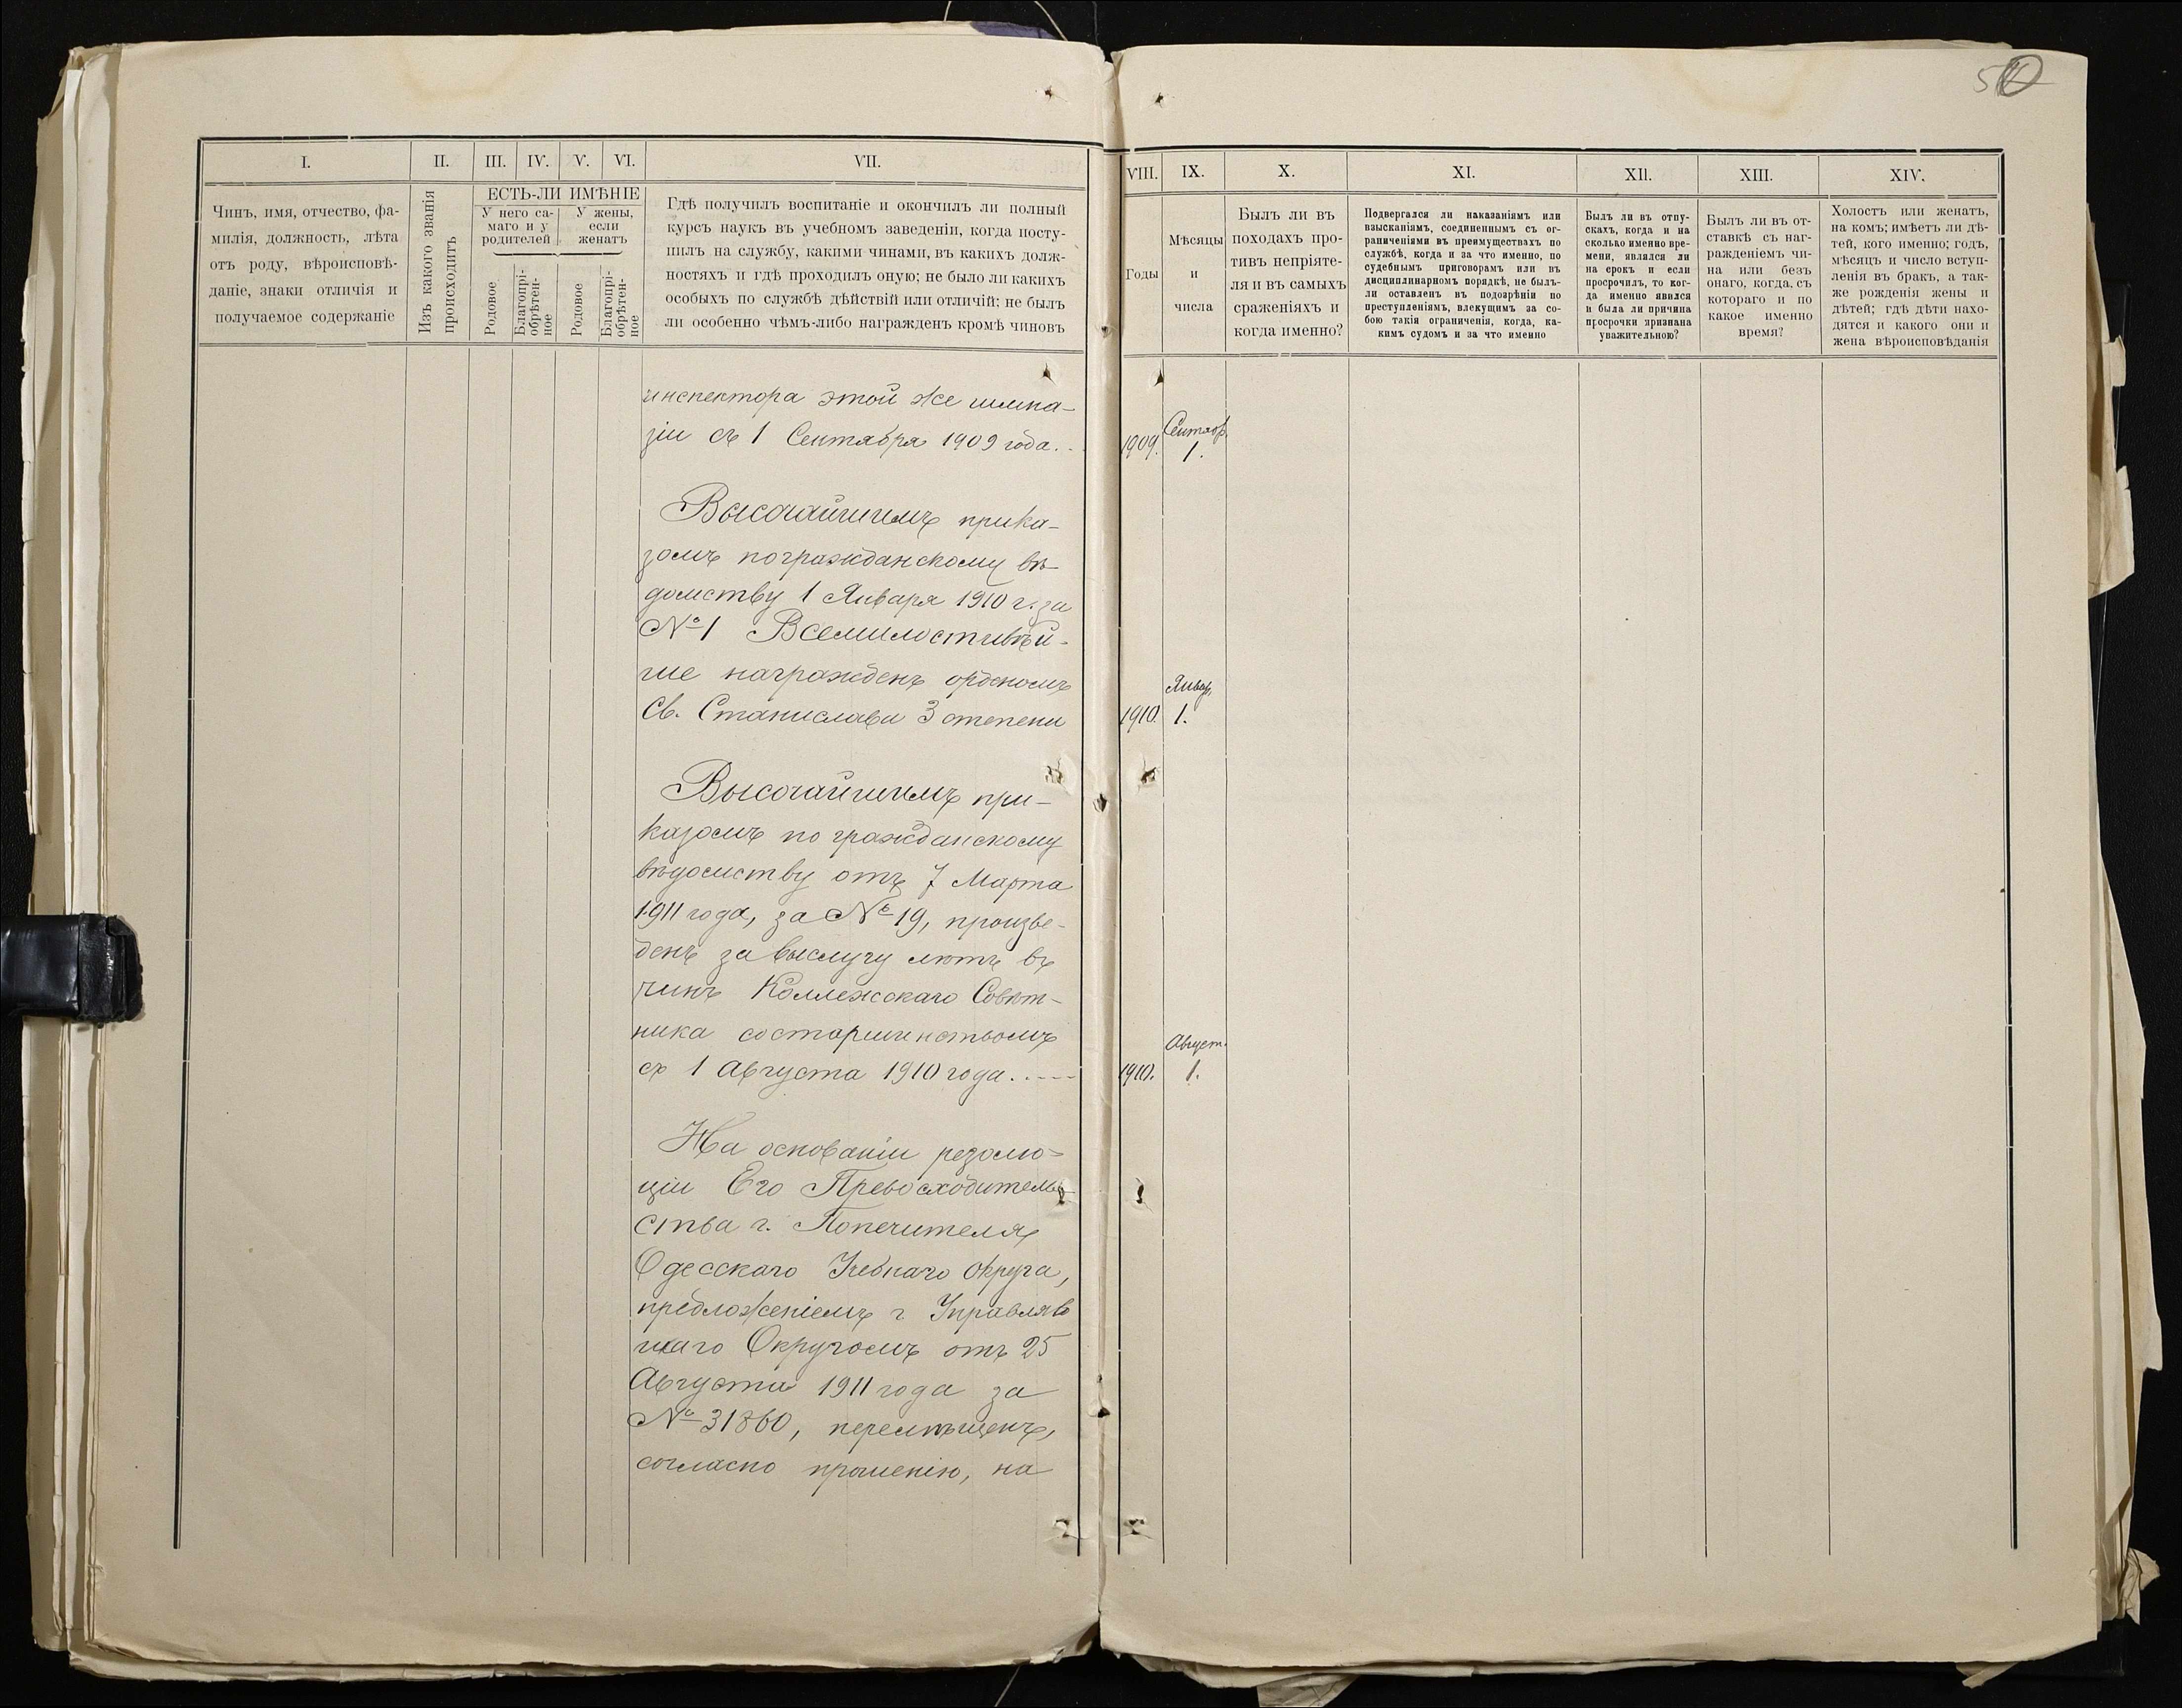 I.
II.
III.
IV.
V.
VI.
VII.
Чинъ, имя, отчество, фа-
милія, должность, лѣта
отъ роду, вѣроисповѣ-
даніе, знаки отличія и
получаемое содержаніе
Изъ какого званія
происходитъ
ЕСТЬ-ЛИ ИМѢНІЕ
У него са-
маго и у
родителей
У жены,
если
женатъ
Родовое
Благопрі-
обрѣтен-
ное
Родовое
Благопрі-
обрѣтен-
ное
Гдѣ получилъ воспитаніе и окончилъ ли полный
курсъ наукъ въ учебномъ заведеніи, когда посту-
пилъ на службу, какими чинами, въ какихъ долж-
ностяхъ и гдѣ проходилъ оную; не было ли какихъ
особыхъ по службѣ дѣйствій или отличій; не былъ
ли особенно чѣмъ-либо награжденъ кромѣ чиновъ
инспектора этой же гимна-
зіи съ 1 Сентября 1909 года.
Высочайшимъ прика-
зомъ по гражданскому вѣ-
домству 1 Января 1910 г. за
№ 1 Всемилостивѣй-
ше награжденъ орденомъ
Св. Станислава 3 степени
Высочайшимъ при-
казомъ по гражданскому
вѣдомству отъ 7 Марта
1911 года, за № 19, произве-
денъ за выслугу лѣтъ въ
чинъ Коллежскаго Совѣт-
ника со старшинствомъ
съ 1 Августа 1910 года.
На основаніи резолю-
ціи Его Превосходитель-
ства г. Попечителя
Одесскаго Учебнаго Округа,
предложеніемъ г. Управляв
шаго Округомъ отъ 25
Августа 1911 года за
№ 31860, перемѣщенъ,
согласно прошенію, на
VIII.
IX.
X.
XI.
XII.
XIII.
XIV.
Годы
Мѣсяцы
и
числа
Былъ ли въ
походахъ про-
тивъ непріяте-
ля и въ самыхъ
сраженіяхъ и
когда именно?
Подвергался ли наказаніямъ или
взысканіямъ, соединеннымъ съ ог-
раниченіями въ преимуществахъ по
службѣ, когда и за что именно, по
судебнымъ приговорамъ или въ
дисциплинарномъ порядкѣ, не былъ-
ли оставленъ въ подозрѣніи по
преступленіямъ, влекущимъ за со-
бою такія ограниченія, когда, ка-
кимъ судомъ и за что именно
Былъ ли въ отпу-
скахъ, когда и на
сколько именно вре-
мени, являлся ли
на срокъ и если
просрочилъ, то ког-
да именно явился
и была ли причина
просрочки признана
уважительною?
Былъ ли въ от-
ставкѣ съ наг-
ражденіемъ чи-
на или безъ
онаго, когда, съ
котораго и по
какое именно
время?
Холостъ или женатъ,
на комъ; имѣетъ ли дѣ-
тей, кого именно; годъ,
мѣсяцъ и число вступ-
ленія въ бракъ, а так-
же рожденія жены и
дѣтей; гдѣ дѣти нахо-
дятся и какого они и
жена вѣроисповѣданія
Сентяб.
1909. 1.
Январ.
1910. 1.
Август.
1910. 1.